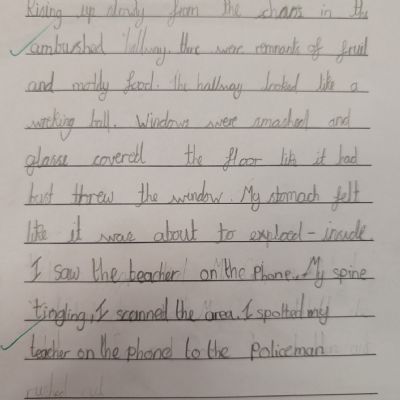 Rising up slowly from the chaos in the
ambushed hallway. there were remnants of fruit
and moldy food. The hallway looked like a
wrecking ball. Windows were smached and
glasse covered the floor lik it had
bust threw the window. My stomach felt
like it was about to explood - inside.
I saw the teacher on the Phone. My spine
tingling, I scanned the area. I spotted my
teacher on the phone to the Policeman
rushed out